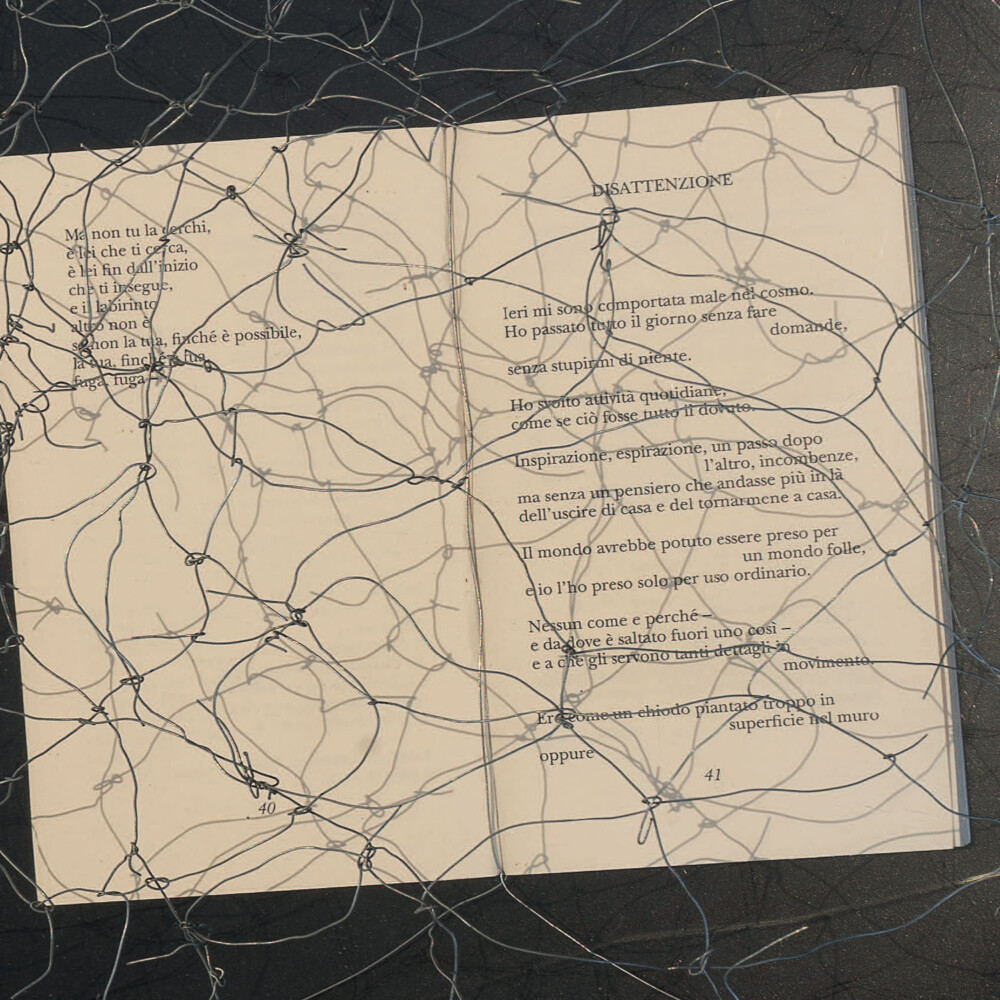 Ma non tu la cerchi,
è lei che ti cerca,
è lei fin dall'inizio
che ti insegue,
e il labirinto
altro non è
se non la tua, finché è possibile,
la tua, finché è tua
fuga, fuga –
40
DISATTENZIONE
Ieri mi sono comportata male nel cosmo.
Ho passato tutto il giorno senza fare
domande,
senza stupirmi di niente.
Ho svolto attività quotidiane,
come se ciò fosse tutto il dovuto.
Inspirazione, espirazione, un passo dopo
l'altro, incombenze,
ma senza un pensiero che andasse più in là
dell'uscire di casa e del tornarmene a casa.
Il mondo avrebbe potuto essere preso per
un mondo folle,
e io l'ho preso solo per uso ordinario.
Nessun come e perché –
e da dove è saltato fuori uno così –
e a che gli servono tanti dettagli in
movimento.
Ero come un chiodo piantato troppo in
superficie nel muro
oppure
41